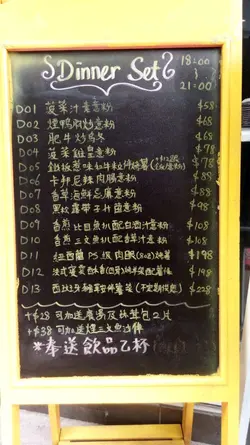 Dinner Set
18:00
21:00
D01 菠菜汁素意粉 $58
D02 煙鴨胸炒意粉 $68
D03 肥牛炒烏冬 $68
D04 菠菜雞皇意粉 $78
D05 鐵板 $78
D06 卡邦尼辣肉腸意粉 $89
D07 香草海鮮忌廉意粉 $88
D08 黑松露帶子 意粉 $98
D09 香煎比目魚扒配白酒汁意粉 $108
D10 香煎三文魚扒配香草汁意粉 $108
D11 紐西蘭 PS級肉眼 $198
D12 法式 $198
D13 西班牙 $228
+$28 可加送餐湯及 包2片
+$38 可加送煙三文魚沙律
*奉送飲品乙杯